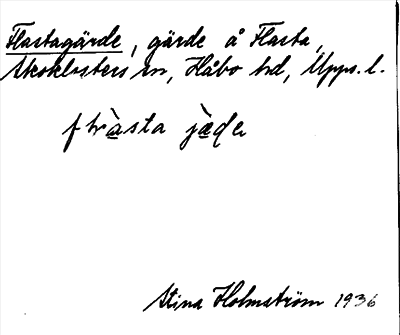 Flastagärde, gärde å Flasta,
Skoklosters sn, Håbo hd, Upps. l.
flràsta jàde
Stina Holmström 1936